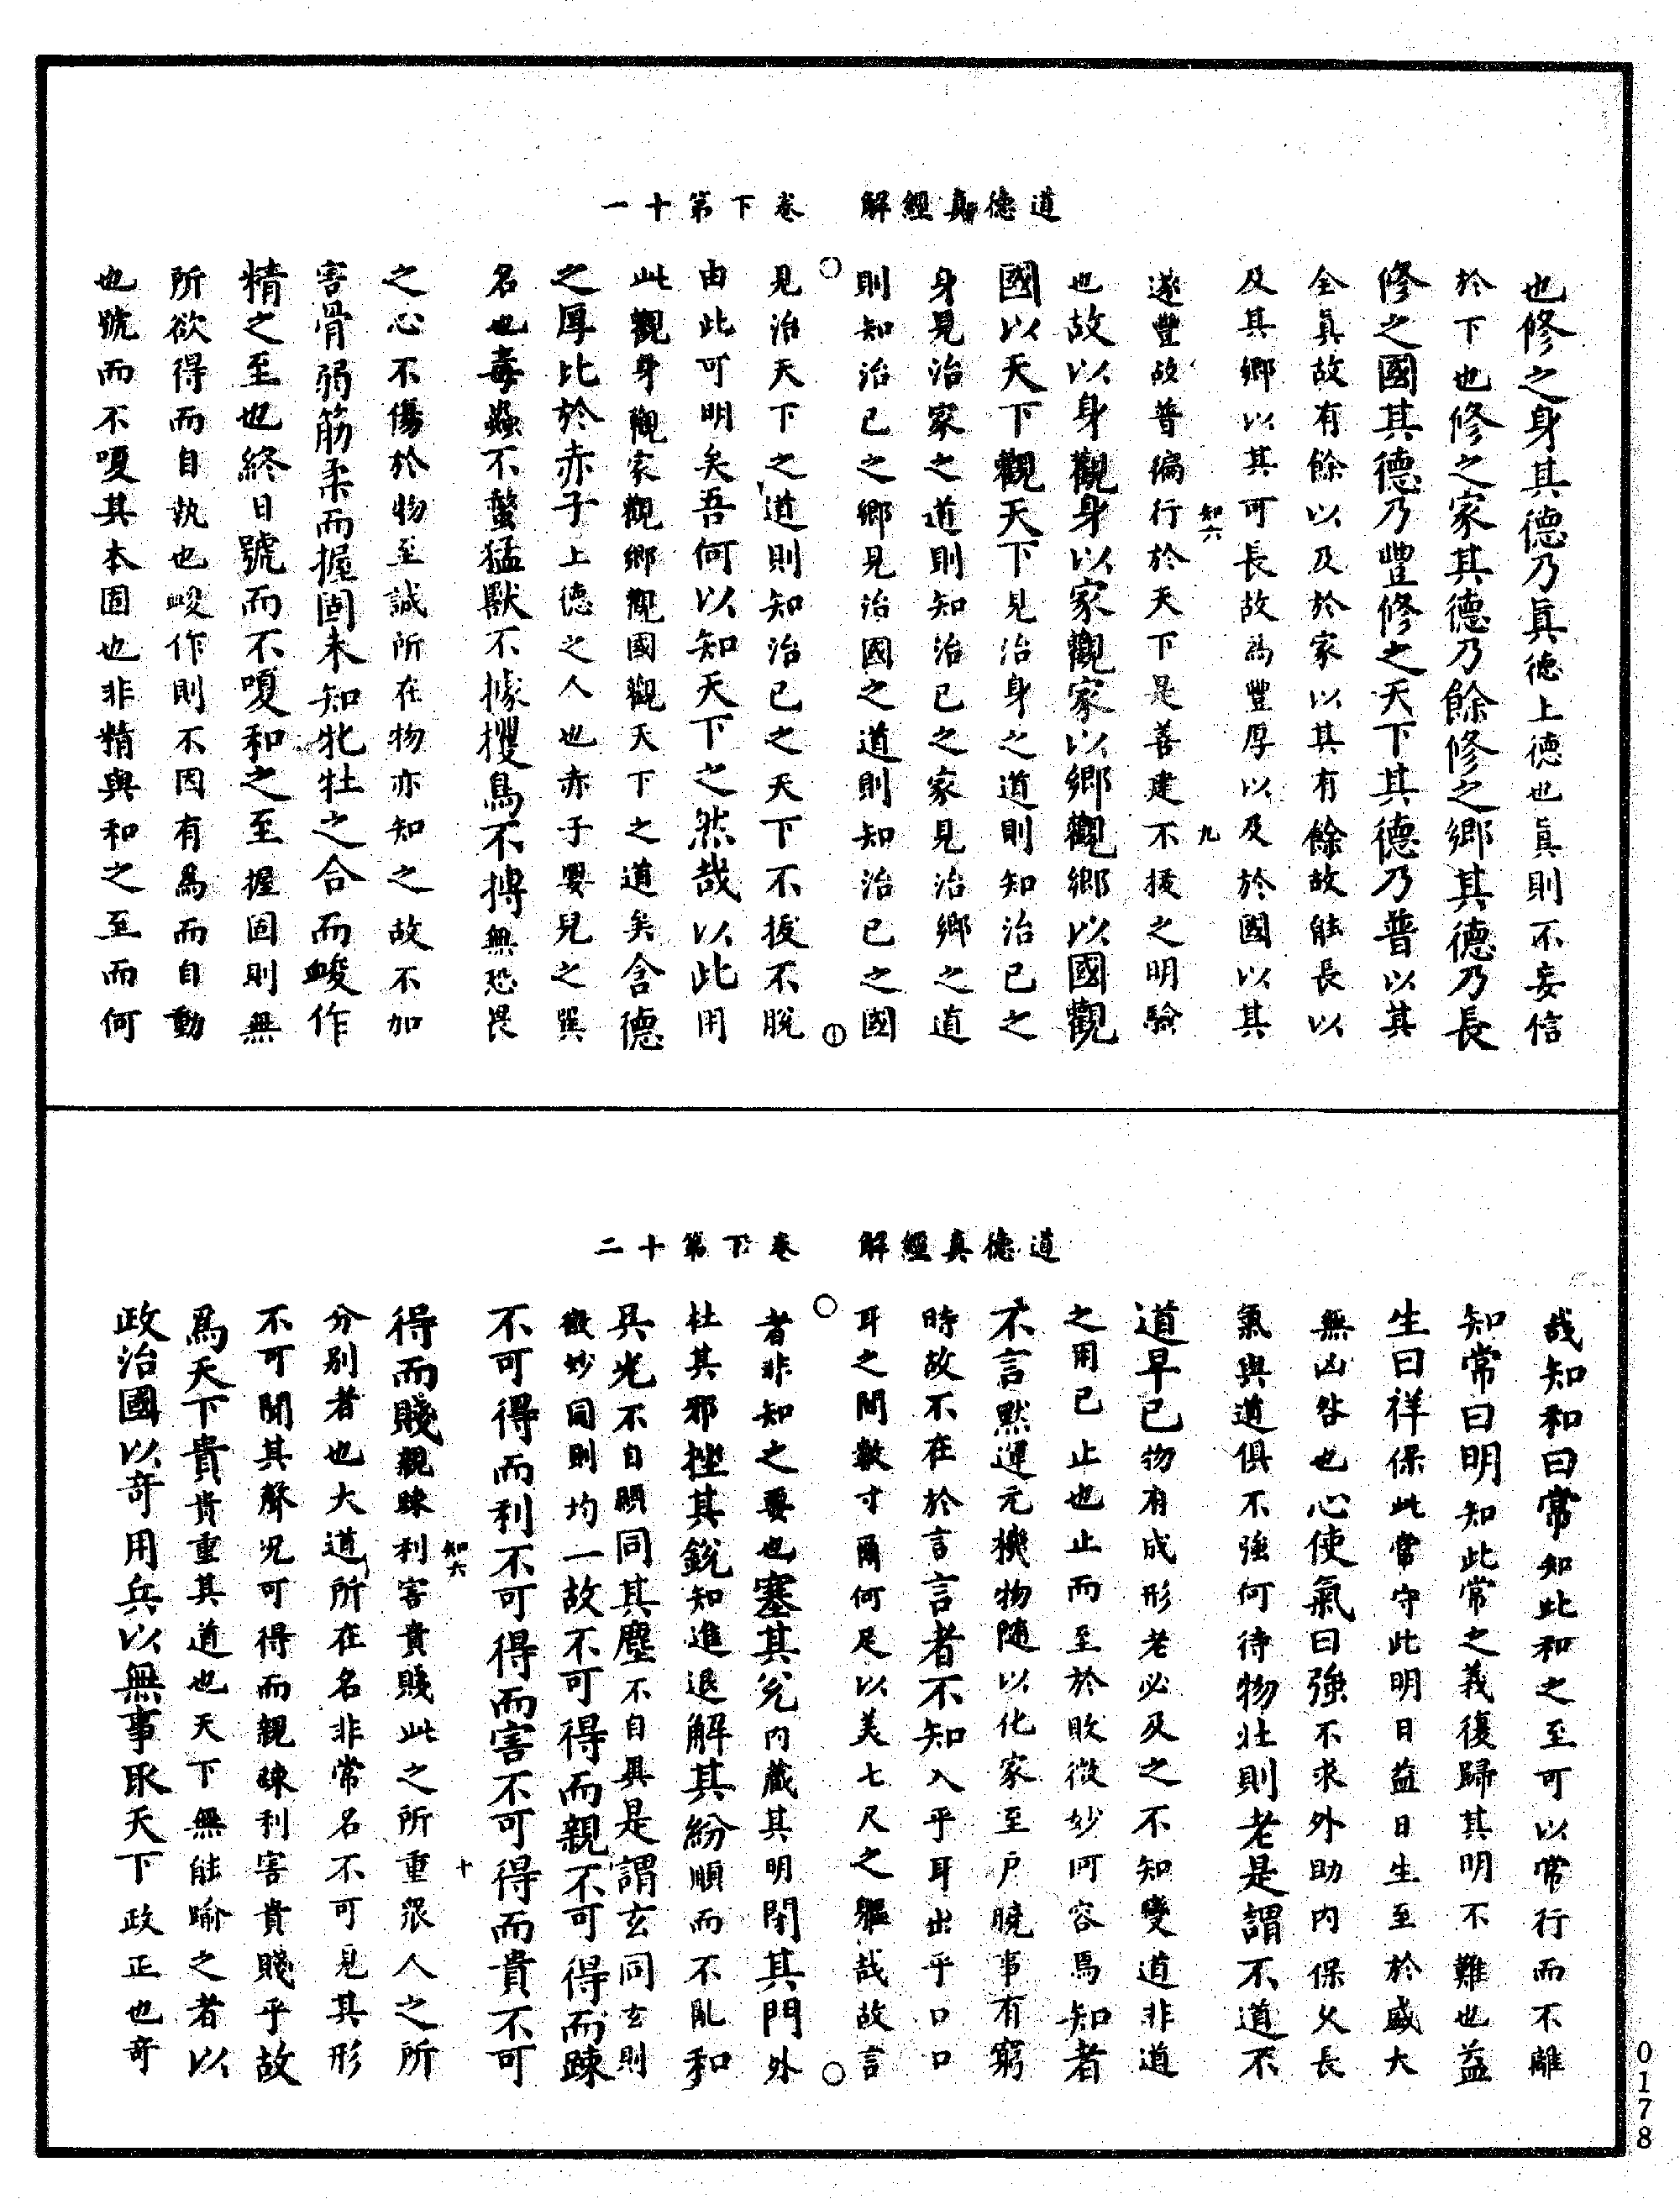 道德真經解　卷下第十一
也修之身其德乃眞德上德也眞則不妄信
於下也修之家其德乃餘修之鄉其德乃長
修之國其德乃豐修之天下其德乃普以其
全眞故有餘以及於家以其有餘故能長以
及其鄉以其可長故為豐厚以及於國以其
知六　九
遂豐故普徧行於天下是善建不拔之明驗
也故以身觀身以家觀家以鄉觀鄉以國觀
國以天下觀天下見治身之道則知治已之
身見治家之道則知治已之家見治鄉之道
則知治已之鄉見治國之道則知治已之國
見治天下之道則知治已之天下不拔不脫
由此可明矣吾何以知天下之然哉以此用
此觀身觀家觀鄉觀國觀天下之道矣含德
之厚比於赤子上德之人也亦于嬰兒之巽
名也毒蟲不螫猛獸不據攫鳥不搏無恐畏
之心不傷於物至誠所在物亦知之故不加
害骨弱筋柔而握固未知牝牡之合而峻作
精之至也終日號而不嗄和之至握固則無
所欲得而自執也峻作則不因有爲而自動
也號而不嗄其本固也非精與和之至而何
道德真經解　卷下第十二
哉知和曰常知此和之至可以常行而不離
知常曰明知此常之義復歸其明不難也益
生曰祥保此常守此明日益日生至於盛大
無凶咎也心使氣曰強不求外助内保久長
氣與道俱不強何待物壯則老是謂不道不
道早已物有成形老必及之不知變道非道
之用已止也止而至於敗微妙何容焉知者
不言默運元機物隨以化家至户曉事有窮
時故不在於言言者不知入乎耳出乎口口
耳之間數寸爾何足以美七尺之軀哉故言
者非知之要也塞其兌内藏其明閉其門外
杜其邪挫其銳知進退解其紛順而不亂和
其光不自顯同其塵不自異是謂玄同玄則
微妙同則均一故不可得而親不可得而踈
不可得而利不可得而害不可得而貴不可
知六　十
得而賤親踈利害貴賤此之所重衆人之所
分別者也大道所在名非常名不可見其形
不可聞其聲况可得而親踈利害貴賤乎故
爲天下貴貴重其道也天下無能踰之者以
政治國以奇用兵以無事取天下政正也奇
0178